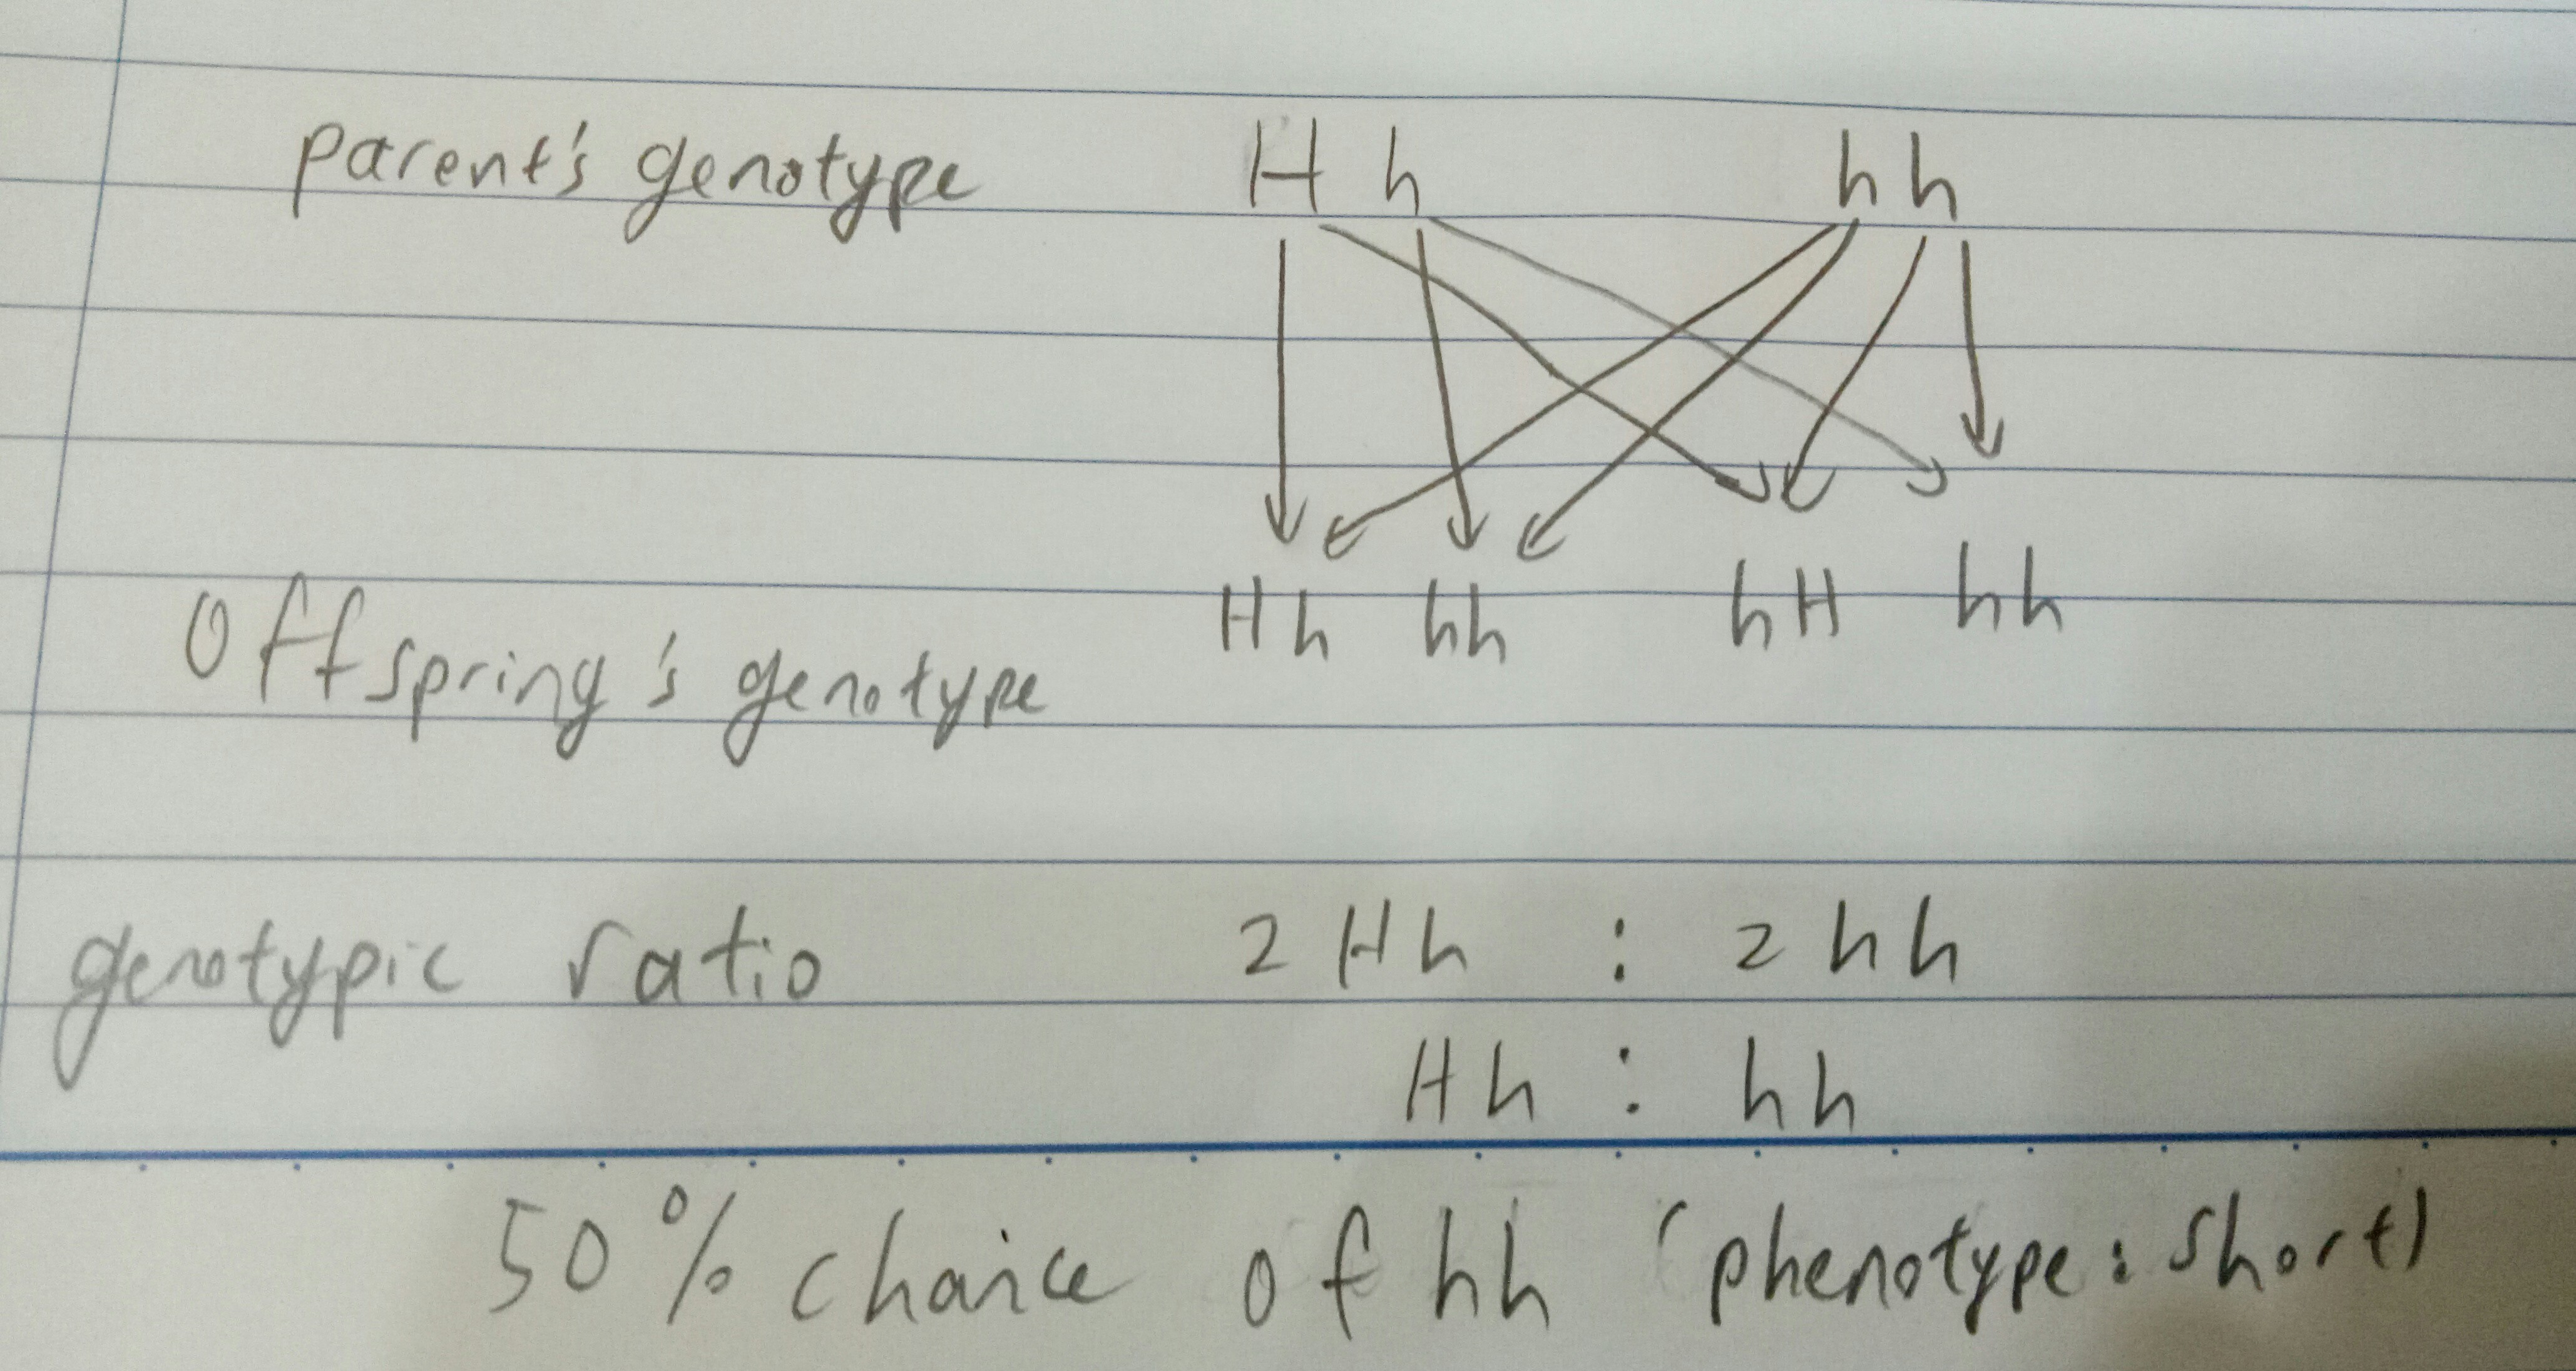 parent's genotype H h hh
Hh hh hH hh
Offspring's genotype
genotypic ratio 2 Hh : 2 hh
Hh : hh
50% chance of hh (phenotype: short)